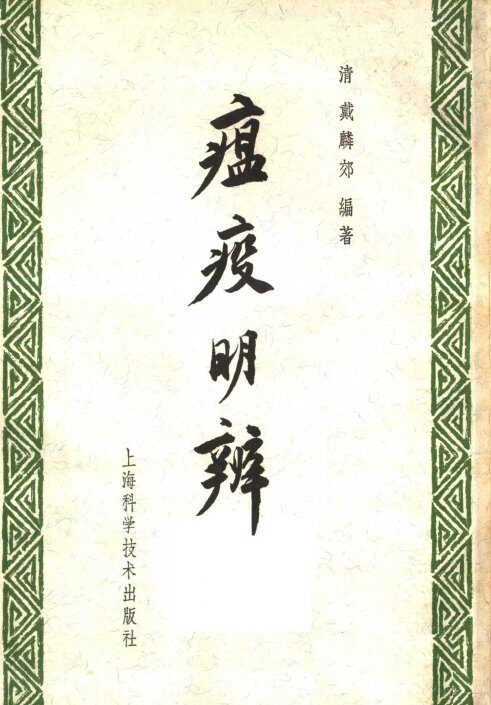 清 戴麟郊 编著
瘟疫明辨
上海科学技术出版社